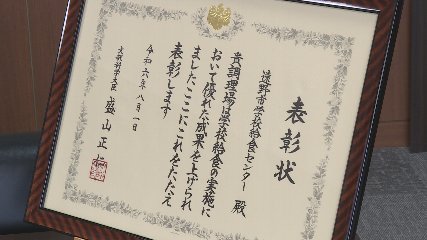 表彰状
遠野市学校給食センター 殿
貴調理場は学校給食の実施に
おいて優れた成果を上げられ
ましたここにこれをたたえ
表彰します
令和六年八月一日
文部科学大臣 盛山正仁